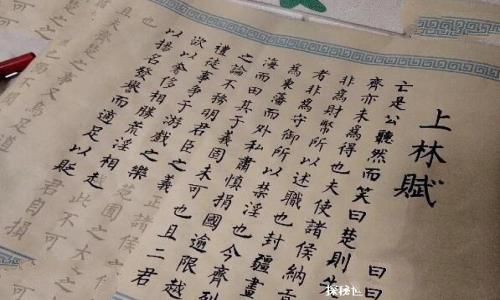 上林賦
亡是公聽然而笑曰楚則失
齊亦未為得也夫使諸侯納貢
非為財幣所以述職也封疆畫
者非為守御所以禁淫也今齊列
為東藩而外私肅慎捐國逾限越
海而田其于義固未可也且二君
之論不務明君臣之義正諸侯之
禮徒事爭于游戲之樂苑囿之大
欲以奢侈相勝荒淫相越此不可
以揚名發譽而適足以貶君自損
也且夫齊楚之事又烏足道
曰曰
探秘志